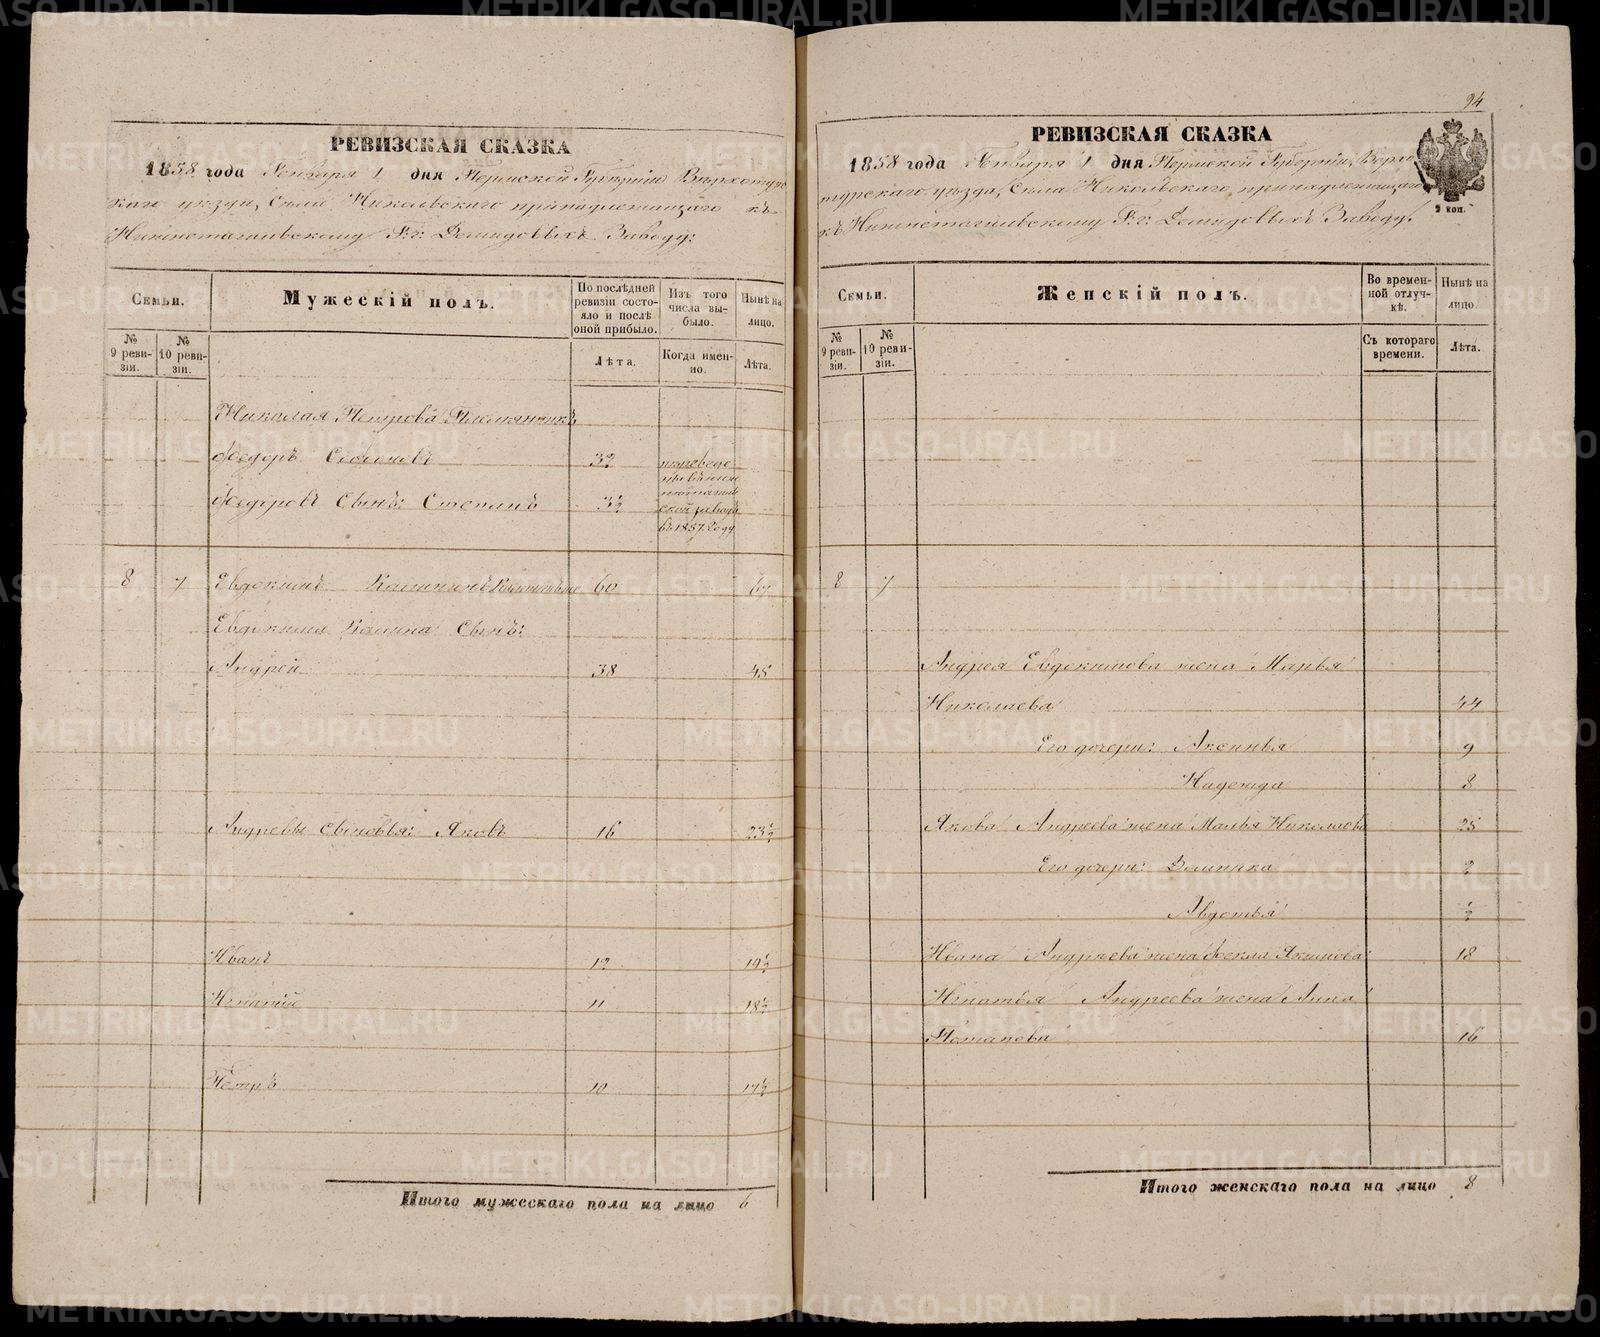 94
РЕВИЗСКАЯ СКАЗКА
1858 года Января 1 дня Пермской Губерніи Верхотурс
каго уезда, Села Никольскаго принадлежащаго къ
Нижнетагильскому Г.г. Демидовыхъ Заводу:
Семьи.
Мужескій полъ.
По послѣдней ревизіи состояло и послѣ оной прибыло.
Изъ того числа выбыло.
Нынѣ на лицо.
№ 9 ревизіи.
№ 10 ревизіи.
Лѣта.
Когда именно.
Лѣта.
Николая Петрова Племянникъ
Федоръ 32
Федоровъ Сынъ: Степанъ 3½
въ 1857 году
8 7 Евдокимъ 60 67
Евдокима Сынъ:
Андрей 38 45
Андреевы Сыновья: Яковъ 16 23½
Иванъ 12 19½
Игнатій 11 18½
Петръ 10 17½
Итого мужескаго пола на лицо 6
РЕВИЗСКАЯ СКАЗКА
1858 года Января 1 дня Пермской Губерніи, Верхо
турскаго уезда, Села Никольскаго, принадлежащаго
къ Нижнетагильскому Г.г. Демидовыхъ Заводу.
2 коп.
Семьи.
Женскій полъ.
Во временной отлучкѣ.
Нынѣ на лицо.
№ 9 ревизіи.
№ 10 ревизіи.
Съ котораго времени.
Лѣта.
8 7
Андрея Евдокимова жена Марья
Николаева 44
Его дочери: Аксинья 9
Надежда 8
Якова Андреева жена Марья Николаева 25
Его дочери: Домника 2
Авдотья ½
Ивана Андреева жена Фекла Якимова 18
Игнатья Андреева жена Анна
Потапова 16
Итого женскаго пола на лицо 8
METRIKI.GASO-URAL.RU